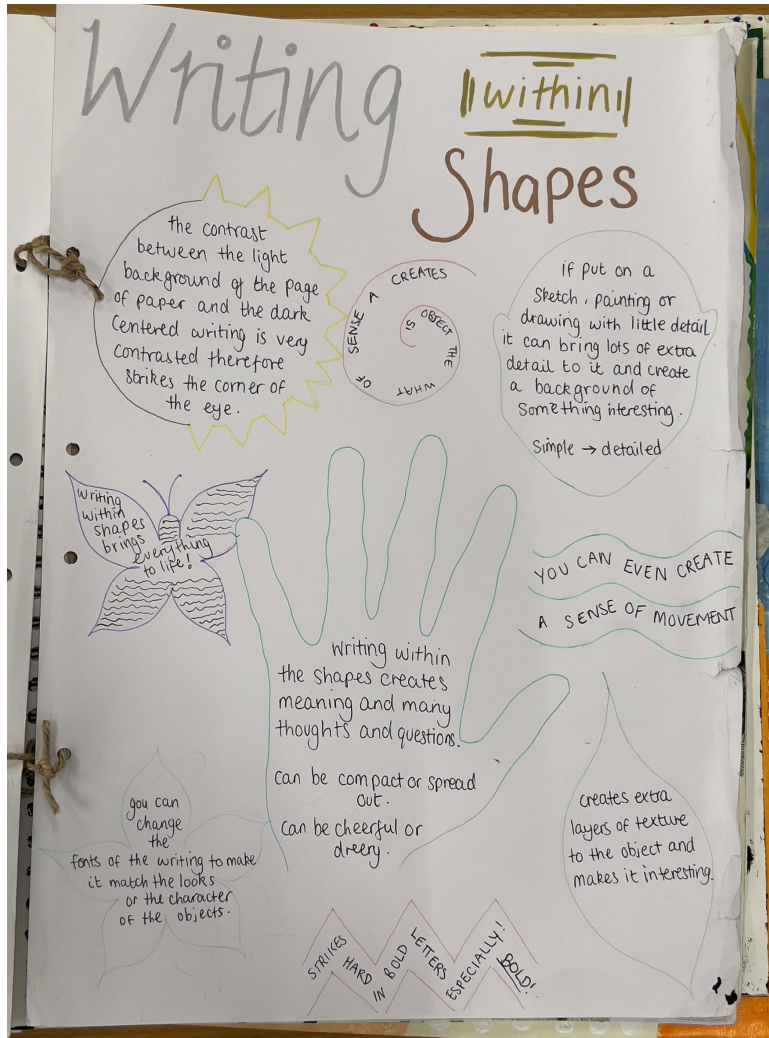 Writing
within
Shapes
the contrast
between the light
background of the page
of paper and the dark
centered writing is very
contrasted therefore
strikes the corner of
the eye.
CREATES
A
SENSE
OF
WHAT
THE
OBJECT
IS
if put on a
sketch, painting or
drawing with little detail
it can bring lots of extra
detail to it and create
a background of
something interesting.
Simple → detailed
writing
within
shapes
brings
everything
to life!
YOU CAN EVEN CREATE
A SENSE OF MOVEMENT
Writing within
the shapes creates
meaning and many
thoughts and questions.
can be compact or spread
out.
Can be cheerful or
dreery.
you can
change
the
fonts of the writing to make
it match the looks
or the character
of the objects.
creates extra
layers of texture
to the object and
makes it interesting.
STRIKES
HARD
IN
BOLD
LETTERS
ESPECIALLY!
BOLD!